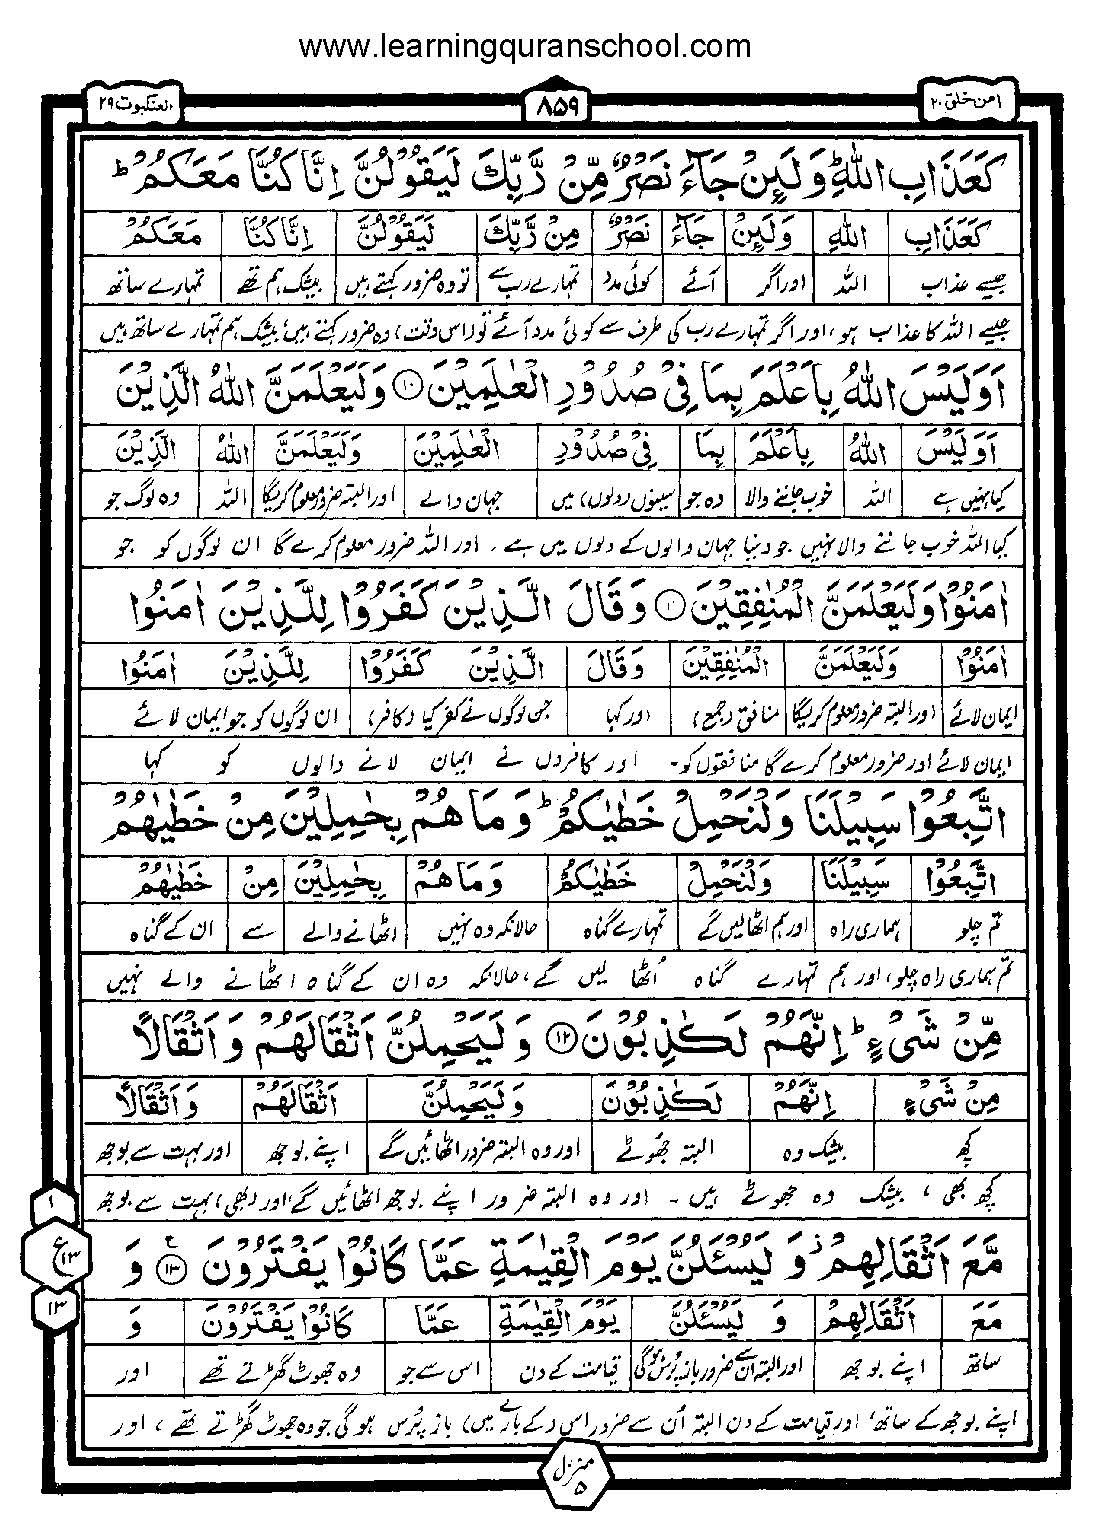 www.learningquranschool.com
امن خلق ٢٠ ٨٥٩ العنكبوت ٢٩
كَعَذَابِ اللّٰهِ ؕ وَلَىِٕنْ جَآءَ نَصْرٌ مِّنْ رَّبِّكَ لَيَقُوْلُنَّ اِنَّا كُنَّا مَعَكُمْ ؕ
كَعَذَابِ اللّٰهِ وَلَىِٕنْ جَآءَ نَصْرٌ مِنْ رَّبِّكَ لَيَقُوْلُنَّ اِنَّا كُنَّا مَعَكُمْ
جیسے عذاب اللہ اور اگر آئے کوئی مدد تمہارے رب سے تو وہ ضرور کہتے ہیں بیشک ہم تھے تمہارے ساتھ
جیسے اللہ کا عذاب ہو، اور اگر تمہارے رب کی طرف سے کوئی مدد آئے تو (اس وقت) وہ ضرور کہتے ہیں بیشک ہم تمہارے ساتھ ہیں
اَوَلَيْسَ اللّٰهُ بِاَعْلَمَ بِمَا فِيْ صُدُوْرِ الْعٰلَمِيْنَ ١٠ وَلَيَعْلَمَنَّ اللّٰهُ الَّذِيْنَ
اَوَلَيْسَ اللّٰهُ بِاَعْلَمَ بِمَا فِيْ صُدُوْرِ الْعٰلَمِيْنَ وَلَيَعْلَمَنَّ اللّٰهُ الَّذِيْنَ
کیا نہیں ہے اللہ خوب جاننے والا وہ جو سینوں (دلوں) میں جہان والے اور البتہ ضرور معلوم کریگا اللہ وہ لوگ جو
کیا اللہ خوب جاننے والا نہیں جو دنیا جہان والوں کے دلوں میں ہے۔ اور اللہ ضرور معلوم کرے گا ان لوگوں کو جو
اٰمَنُوْا وَلَيَعْلَمَنَّ الْمُنٰفِقِيْنَ ١١ وَقَالَ الَّذِيْنَ كَفَرُوْا لِلَّذِيْنَ اٰمَنُوا
اٰمَنُوْا وَلَيَعْلَمَنَّ الْمُنٰفِقِيْنَ وَقَالَ الَّذِيْنَ كَفَرُوْا لِلَّذِيْنَ اٰمَنُوا
ایمان لائے اور البتہ ضرور معلوم کریگا منافق (جمع) اور کہا جن لوگوں نے کفر کیا (کافر) ان لوگوں کو جو ایمان لائے
ایمان لائے اور ضرور معلوم کرے گا منافقوں کو۔ اور کافروں نے ایمان لانے والوں کو کہا
اتَّبِعُوْا سَبِيْلَنَا وَلْنَحْمِلْ خَطٰيٰكُمْ ؕ وَمَا هُمْ بِحٰمِلِيْنَ مِنْ خَطٰيٰهُمْ
اتَّبِعُوْا سَبِيْلَنَا وَلْنَحْمِلْ خَطٰيٰكُمْ وَمَا هُمْ بِحٰمِلِيْنَ مِنْ خَطٰيٰهُمْ
تم چلو ہماری راہ اور ہم اٹھالیں گے تمہارے گناہ حالانکہ وہ نہیں اٹھانے والے سے ان کے گناہ
تم ہماری راہ چلو، اور ہم تمہارے گناہ اُٹھا لیں گے، حالانکہ وہ ان کے گناہ اٹھانے والے نہیں
مِّنْ شَيْءٍ ؕ اِنَّهُمْ لَكٰذِبُوْنَ ١٢ وَلَيَحْمِلُنَّ اَثْقَالَهُمْ وَاَثْقَالًا
مِنْ شَيْءٍ اِنَّهُمْ لَكٰذِبُوْنَ وَلَيَحْمِلُنَّ اَثْقَالَهُمْ وَاَثْقَالًا
کچھ بیشک وہ البتہ جھوٹے اور وہ البتہ ضرور اٹھائیں گے اپنے بوجھ اور بہت سے بوجھ
کچھ بھی، بیشک وہ جھوٹے ہیں۔ اور وہ البتہ ضرور اپنے بوجھ اٹھائیں گے اور (بھی) بہت سے بوجھ
مَّعَ اَثْقَالِهِمْ ز وَلَيُسْـَٔلُنَّ يَوْمَ الْقِيٰمَةِ عَمَّا كَانُوْا يَفْتَرُوْنَ ١٣ ع وَ
١
ع ١٣
١٣
مَعَ اَثْقَالِهِمْ وَ لَيُسْـَٔلُنَّ يَوْمَ الْقِيٰمَةِ عَمَّا كَانُوْا يَفْتَرُوْنَ وَ
ساتھ اپنے بوجھ اور البتہ ان سے ضرور باز پرس ہوگی قیامت کے دن اس سے جو وہ جھوٹ گھڑتے تھے اور
اپنے بوجھ کے ساتھ، اور قیامت کے دن البتہ اُن سے ضرور اس (کے بارے میں) باز پُرس ہوگی جو وہ جھوٹ گھڑتے تھے، اور
منزل ٥